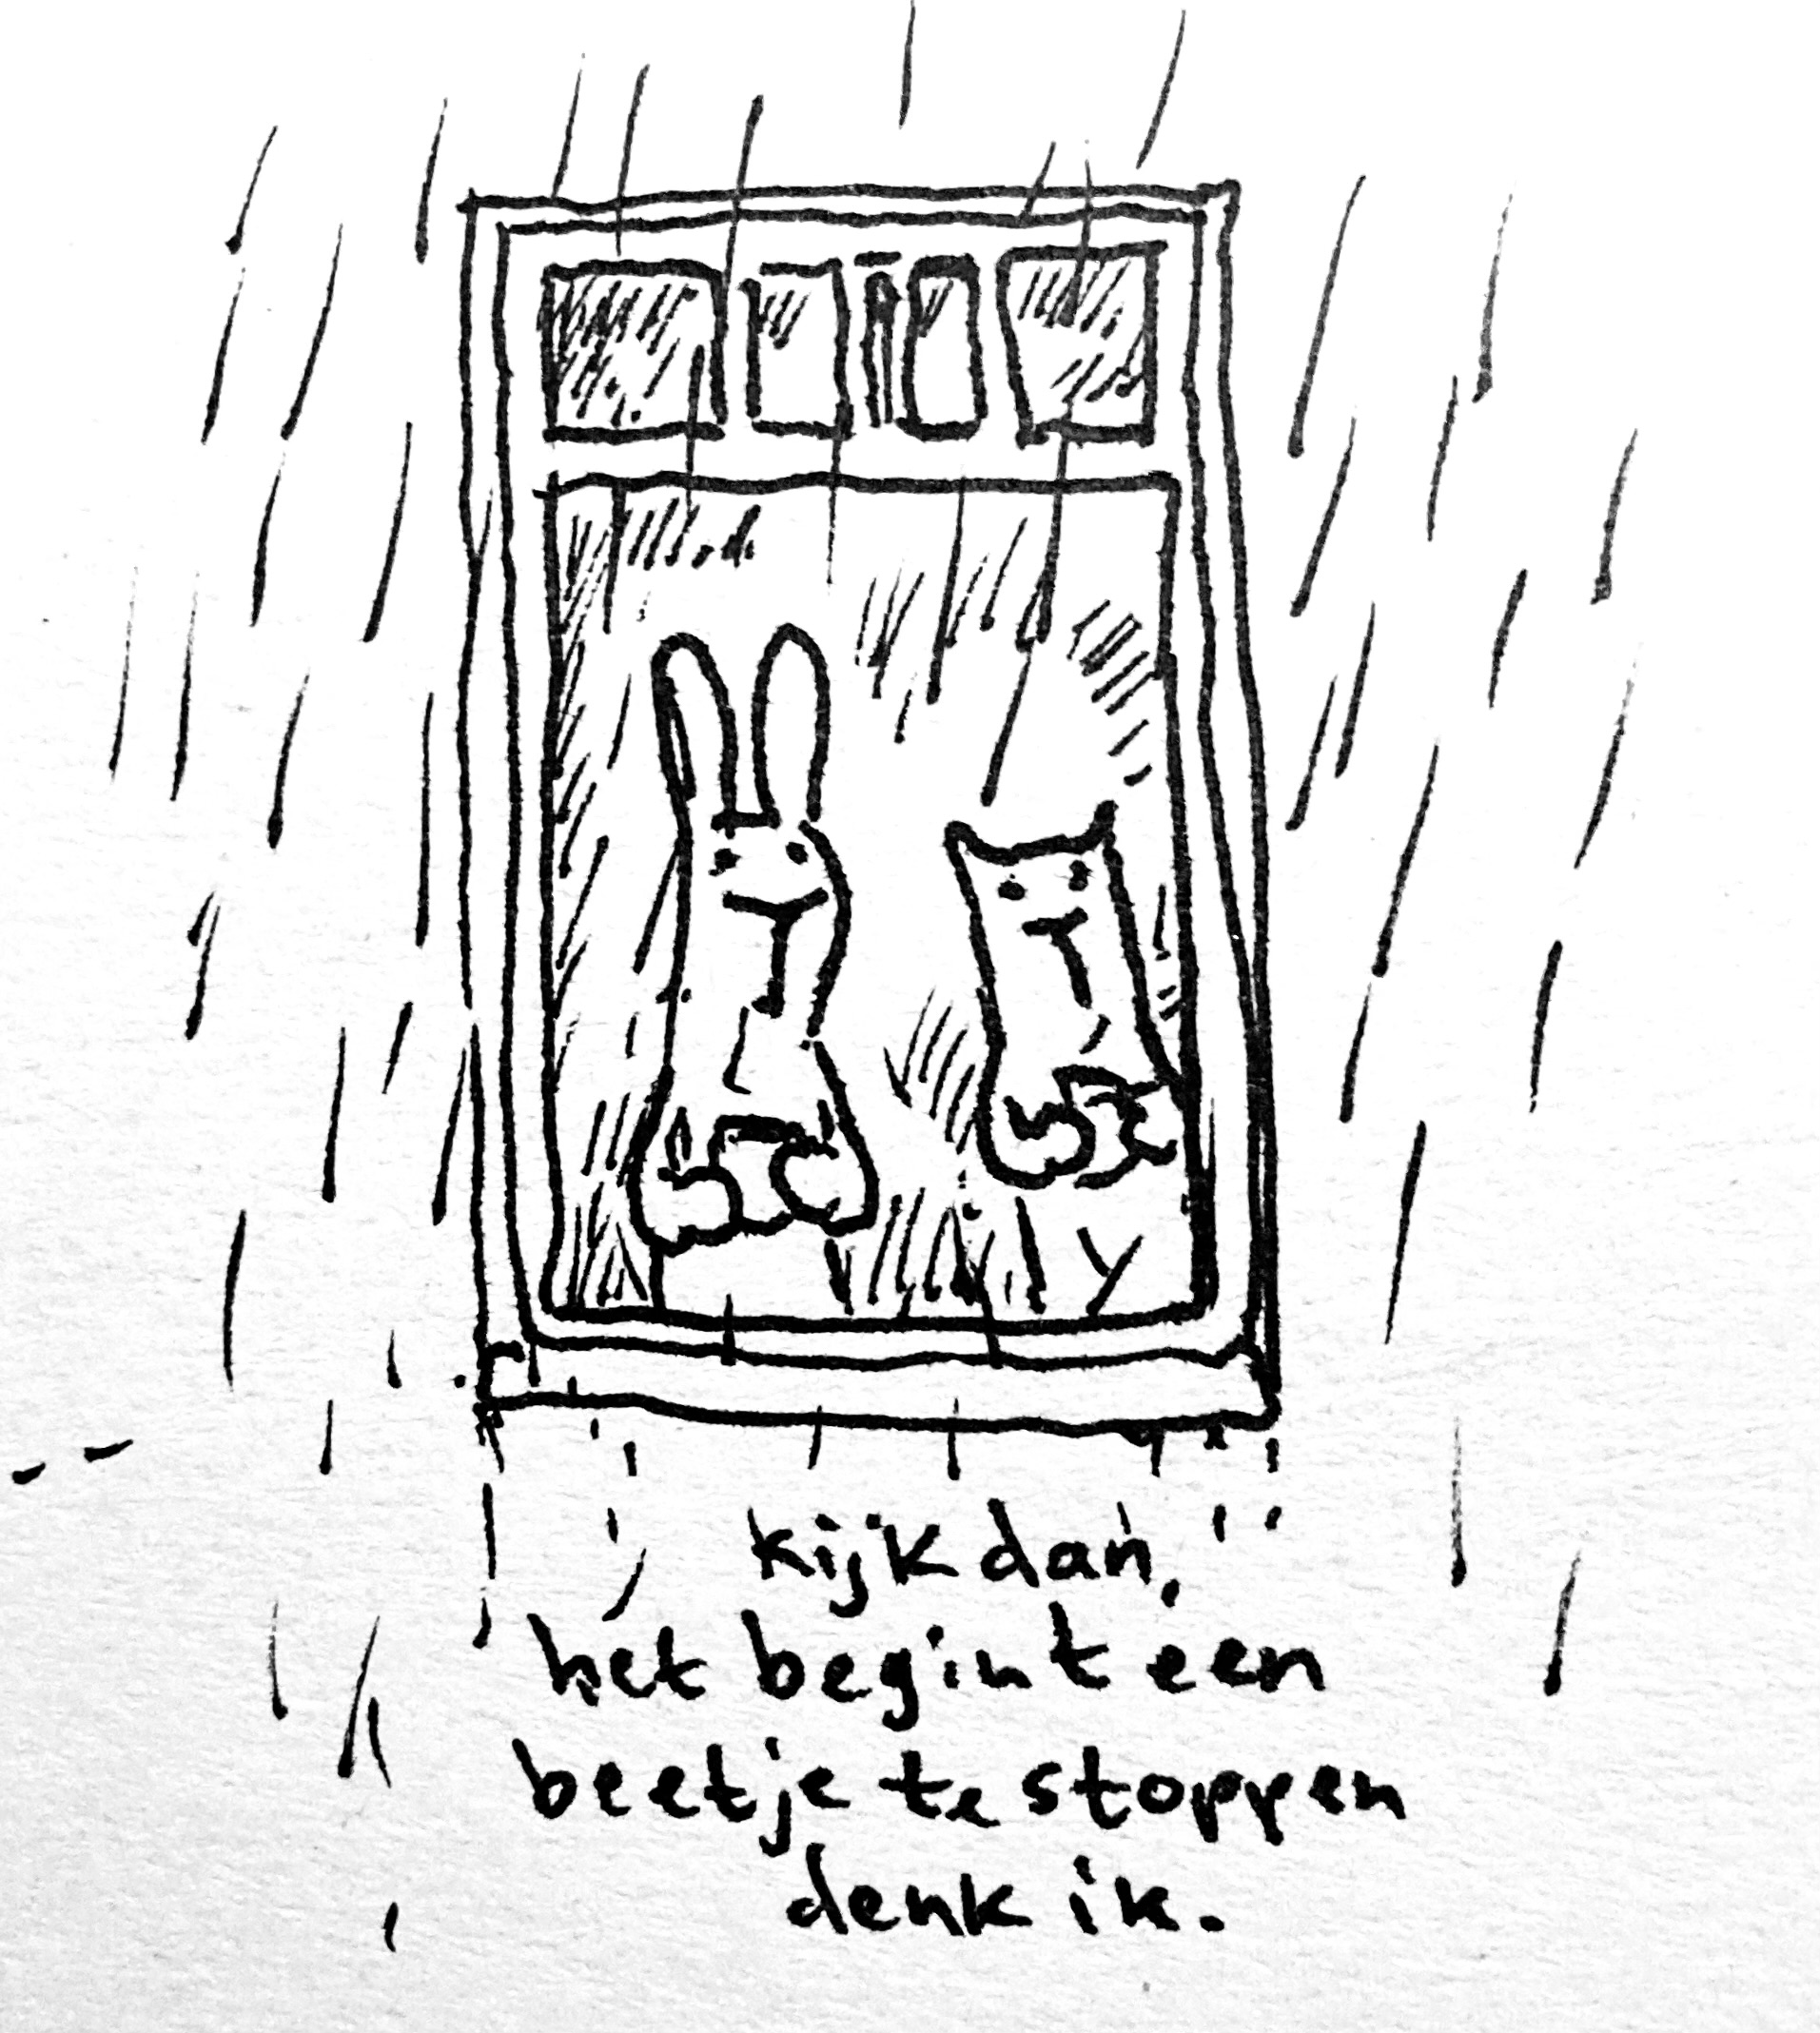 kijk dan,
het begint een
beetje te stoppen
denk ik.